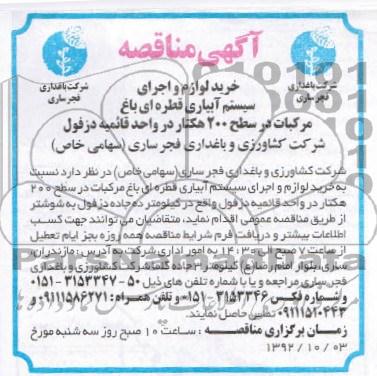 آگهی مناقصه
شرکت باغداری
فجر ساری
شرکت باغداری
فجر ساری
خرید لوازم و اجرای
سیستم آبیاری قطره ای باغ
مرکبات در سطح ۲۰۰ هکتار در واحد قائمیه دزفول
شرکت کشاورزی و باغداری فجر ساری (سهامی خاص)
شرکت کشاورزی و باغداری فجر ساری (سهامی خاص) در نظر دارد نسبت
به خرید لوازم و اجرای سیستم آبیاری قطره ای باغ مرکبات در سطح ۲۰۰
هکتار در واحد قائمیه دزفول واقع در کیلومتر ده جاده دزفول به شوشتر
از طریق مناقصه عمومی اقدام نماید، متقاضیان می توانند جهت کسب
اطلاعات بیشتر و دریافت فرم شرایط مناقصه همه روزه بجز ایام تعطیل
از ساعت ۷ صبح الی ۱۴:۳۰ به امور اداری شرکت به آدرس: مازندران،
ساری، بلوار امام رضا (ع) کیلومتر ۳ جاده شرکت کشاورزی و باغداری
فجر ساری مراجعه و یا با شماره تلفن های ذیل ۵۰-۳۱۵۳۳۴۷-۰۱۵۱
و شماره فکس ۳۱۵۳۳۴۶-۰۱۵۱ و تلفن همراه: ۰۹۱۱۱۵۸۶۲۷۱
۰۹۱۱۱۵۱۰۴۴۳ تماس حاصل نمایند.
زمان برگزاری مناقصه: ساعت ۱۰ صبح روز سه شنبه مورخ
۱۳۹۲/۱۰/۰۳